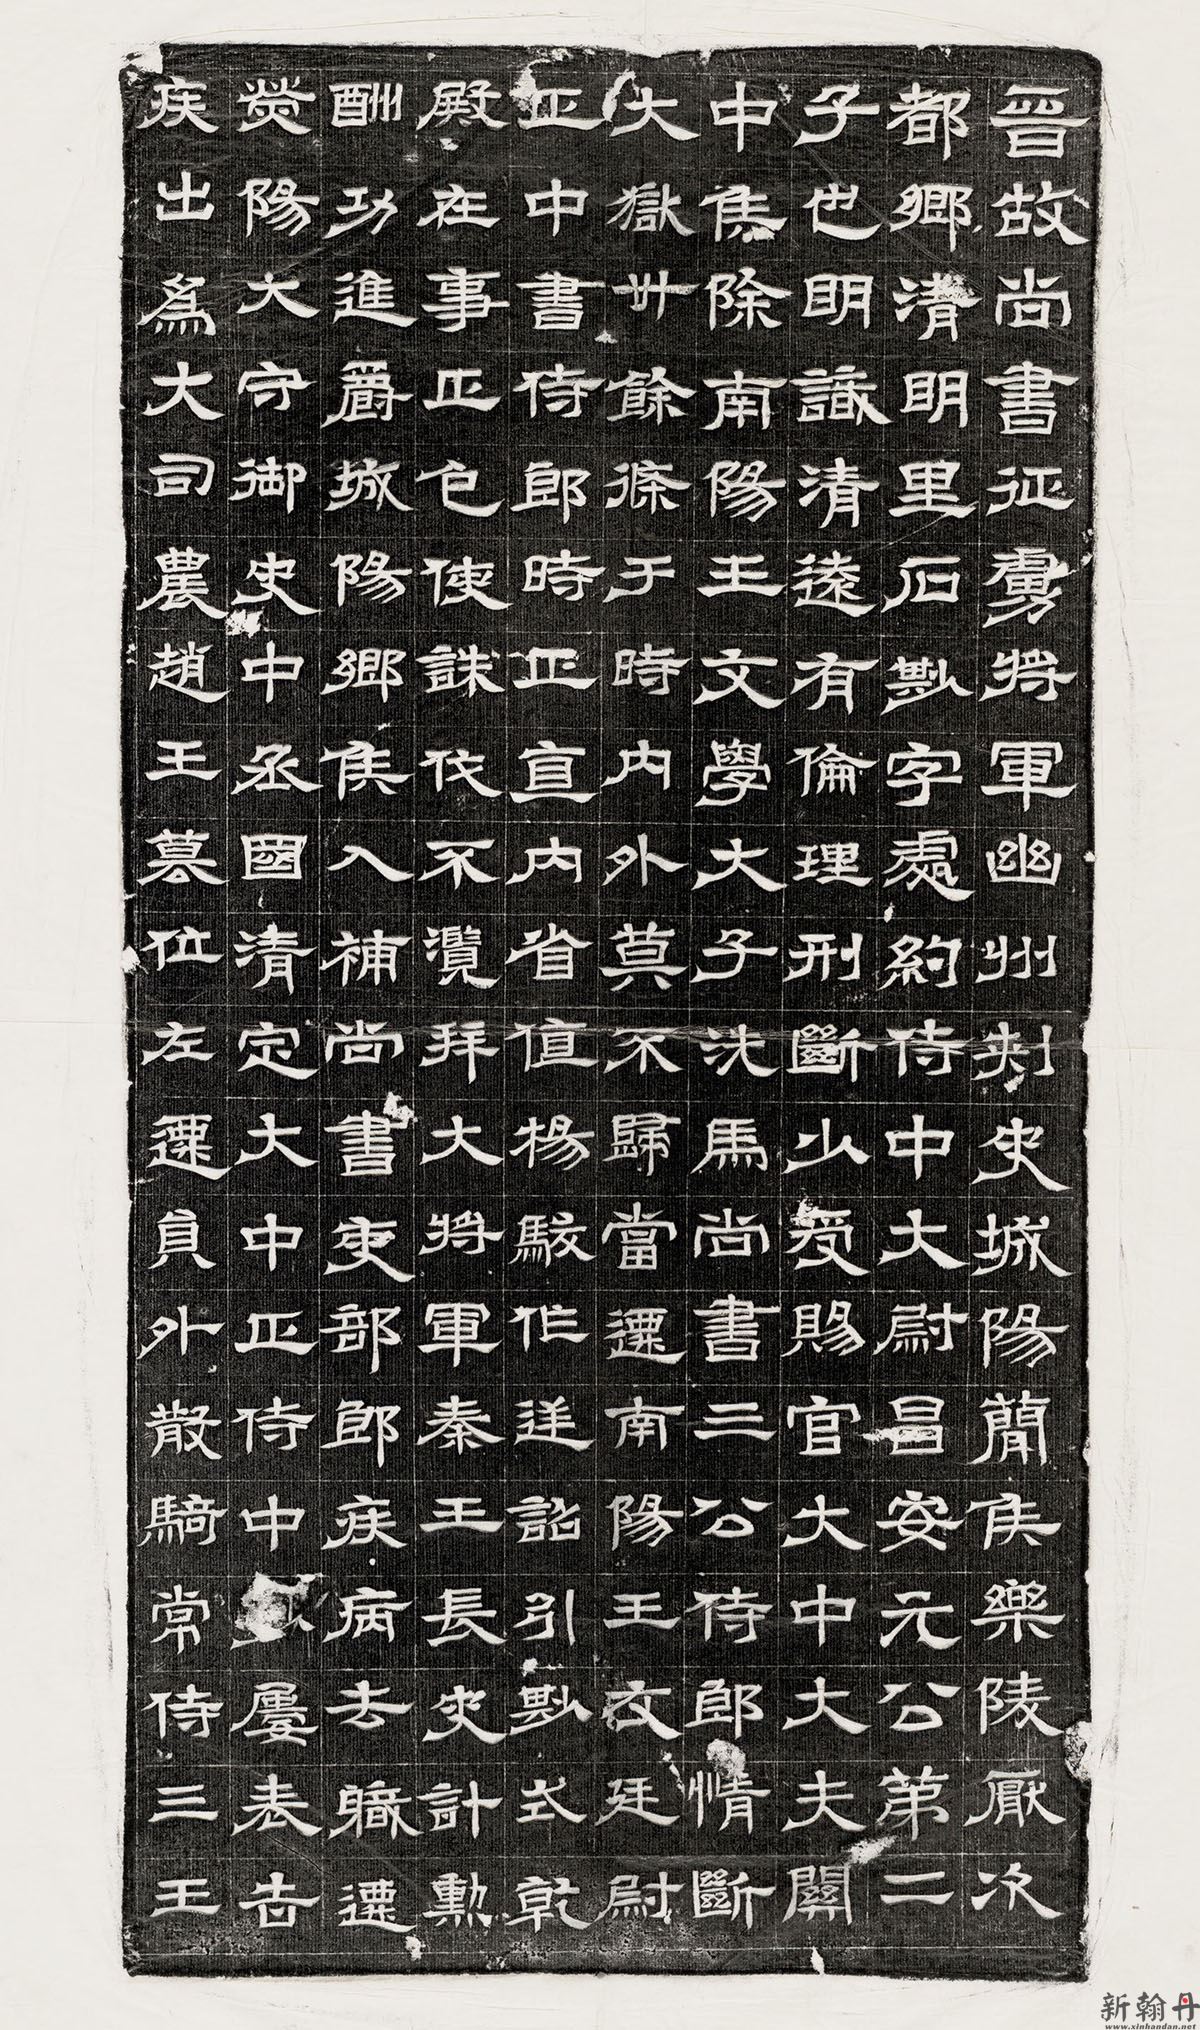 晉故尚書征虜將軍幽州刾史城陽簡侯樂陵厭次
都鄉清明里石尠字處約侍中大尉昌安元公第二
子也明識清遠有倫理刑斷少受賜官大中大夫關
中侯除南陽王文學大子洗馬尚書三公侍郎情斷
大獄卅餘條于時內外莫不歸當遷南陽王文廷尉
正中書侍郎時正直內省值楊駿作逆詔引尠式乾
殿在事正色使誅伐不濫拜大將軍秦王長史計勳
酬功進爵城陽鄉侯入補尚書吏部郎疾病去職遷
滎陽大守御史中丞國清定大中正侍中屢表告
疾出爲大司農趙王篡位左遷員外散騎常侍三王
新翰丹
www.xinhandan.net